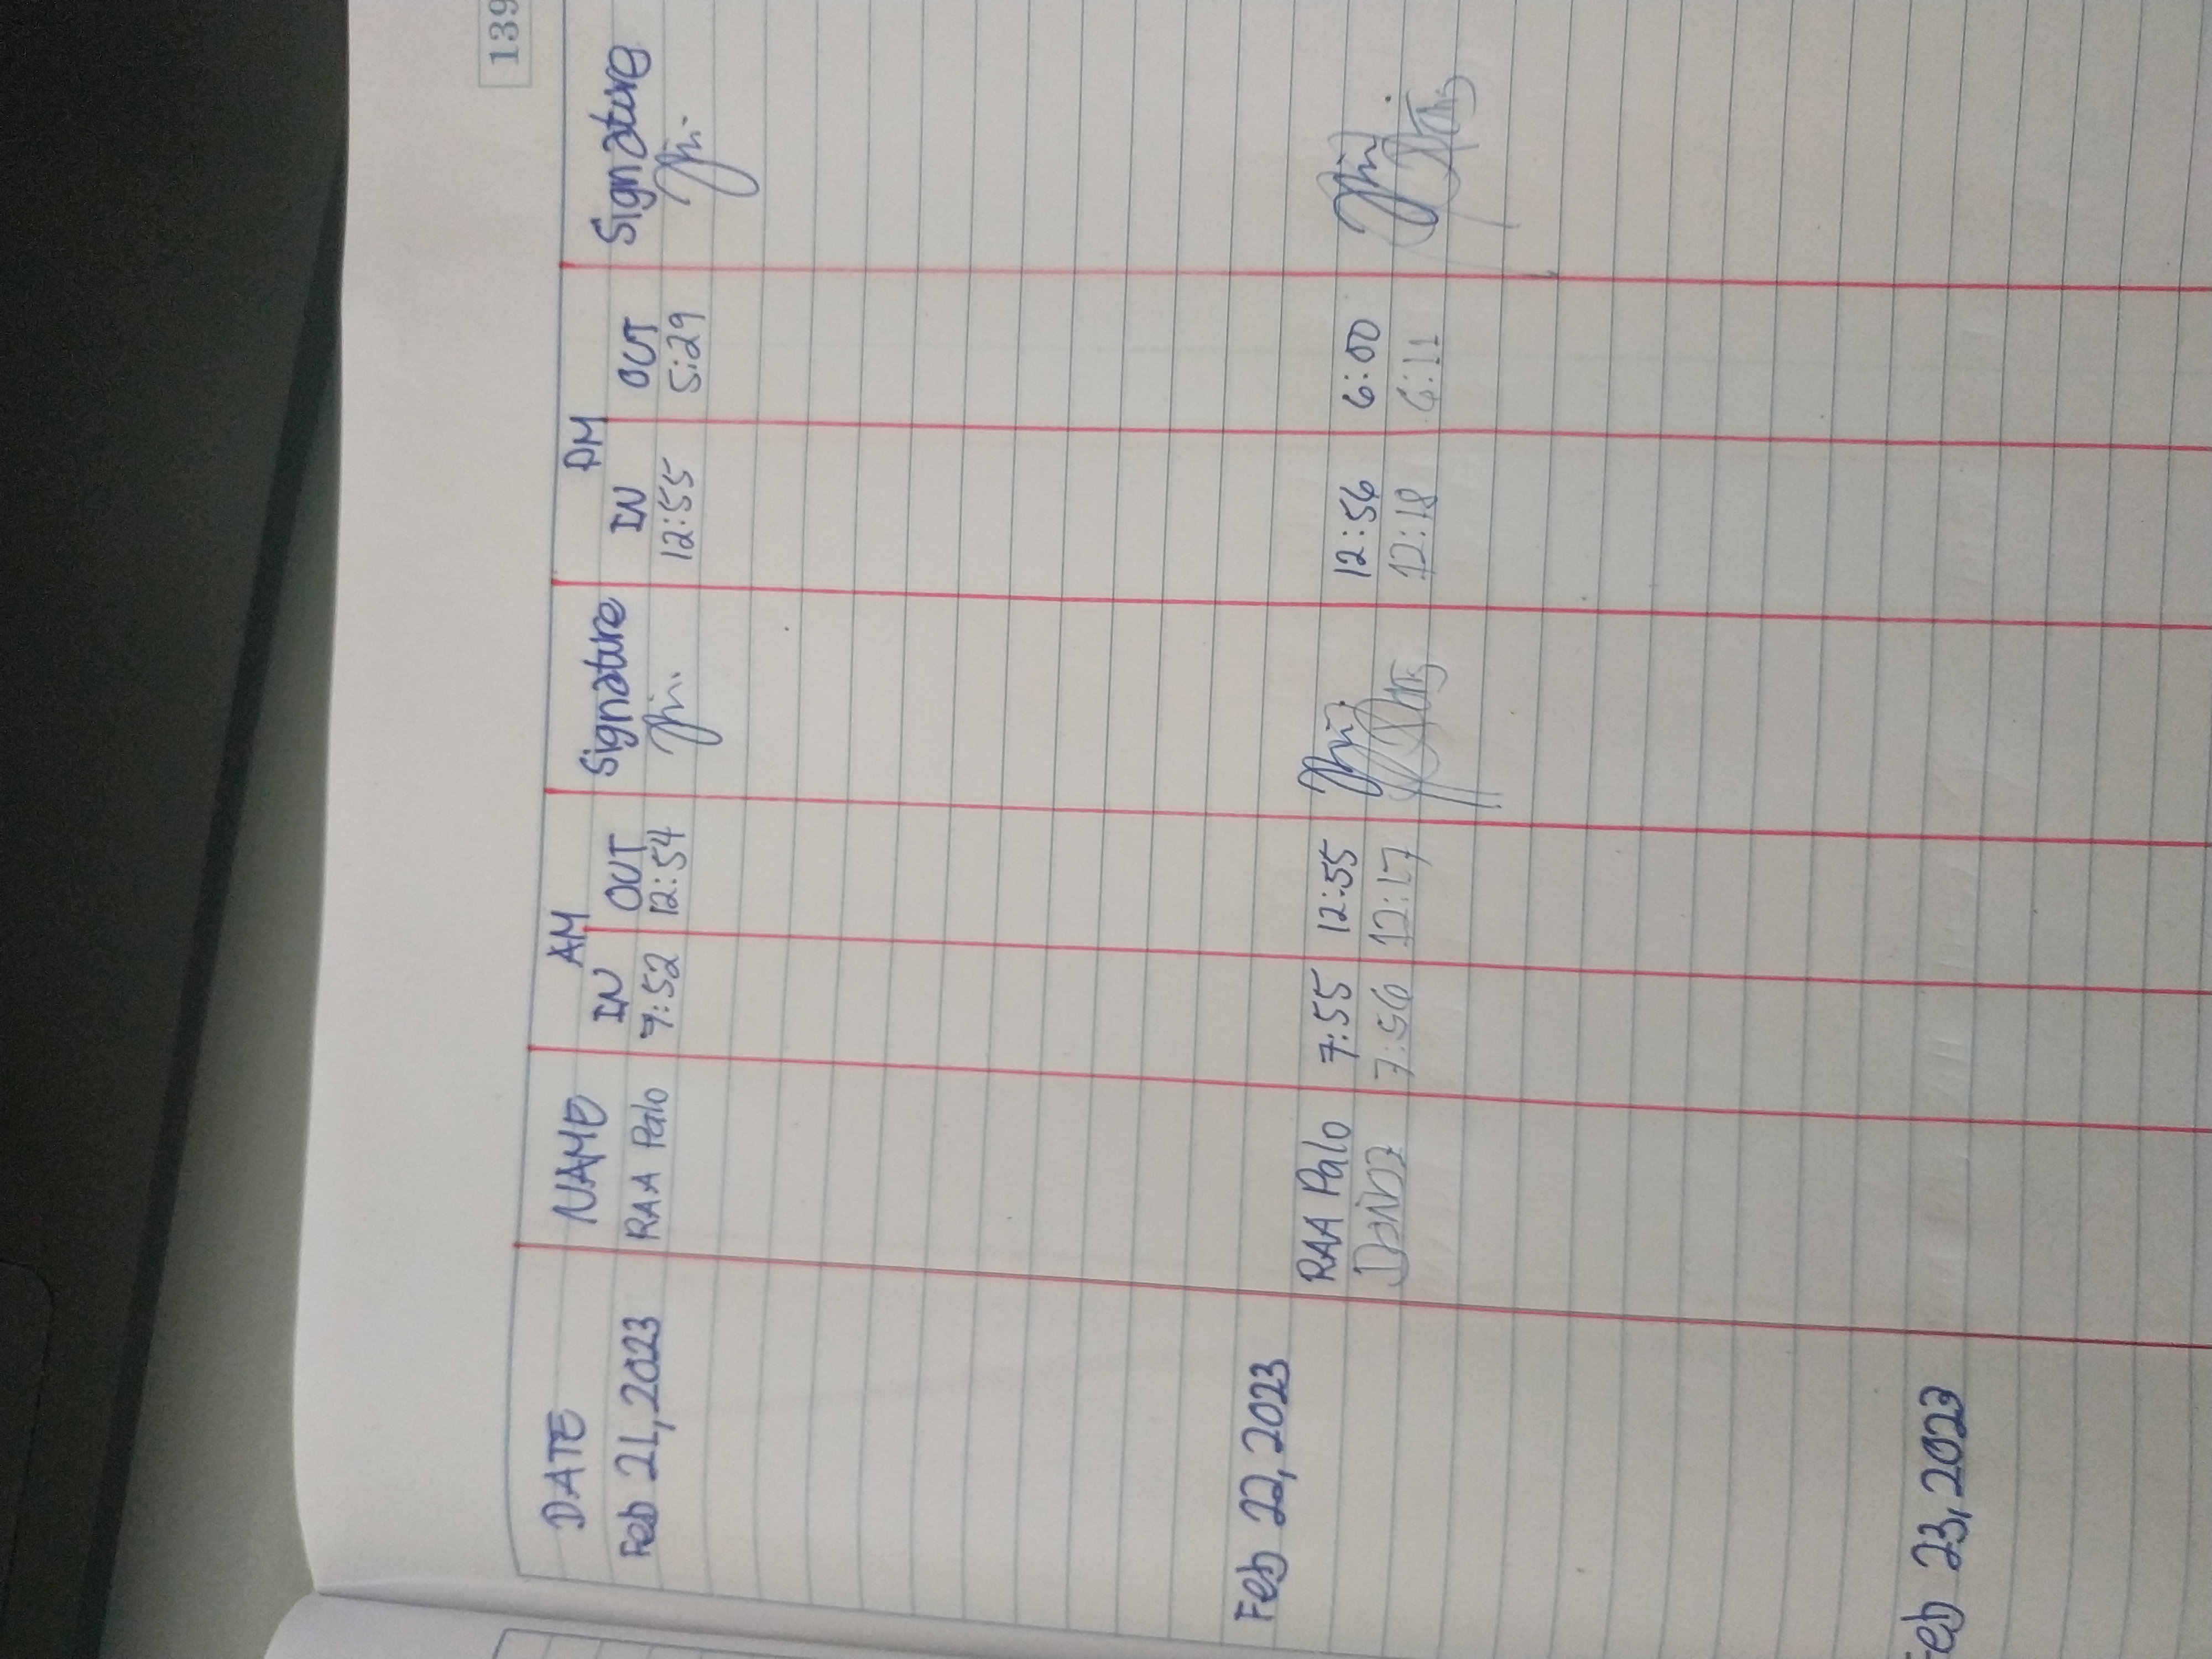 139
AM PM
DATE NAME IN OUT Signature IN OUT Signature
Feb 21, 2023 RAA Palo 7:52 12:54 12:55 5:29
Feb 22, 2023
RAA Palo 7:55 12:55 12:56 6:00
7:56 12:17 12:18 6:11
Feb 23, 2023